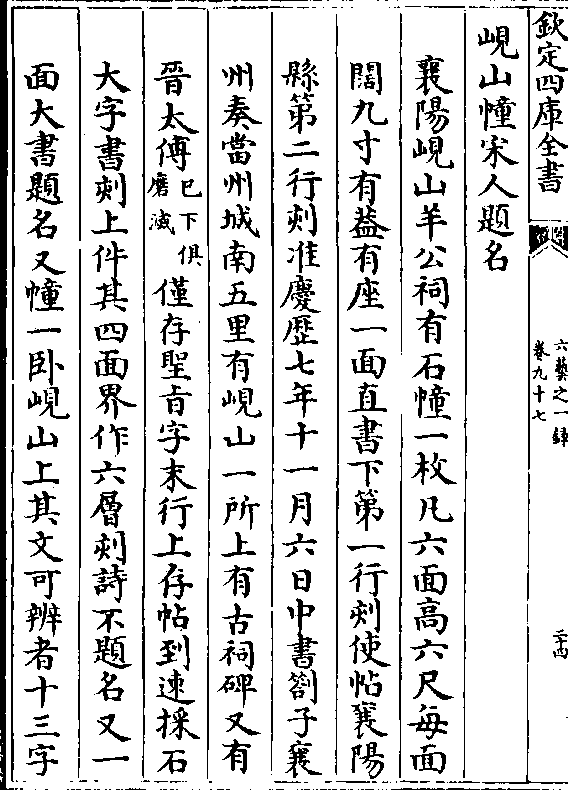 欽定四庫全書
六藝之一錄
卷九十七
二十四
峴山幢宋人題名
襄陽峴山羊公祠有石幢一枚凡六面高六尺每面
闊九寸有葢有座一面直書下第一行刻使帖襄陽
縣第二行刻准慶歴七年十一月六日中書劄子襄
州奏當州城南五里有峴山一所上有古祠碑又有
晉太傅已下俱磨滅僅存聖㫖字末行上存帖到速採石
大字書刻上件其四面界作六層刻詩不題名又一
面大書題名又幢一卧峴山上其文可辨者十三字